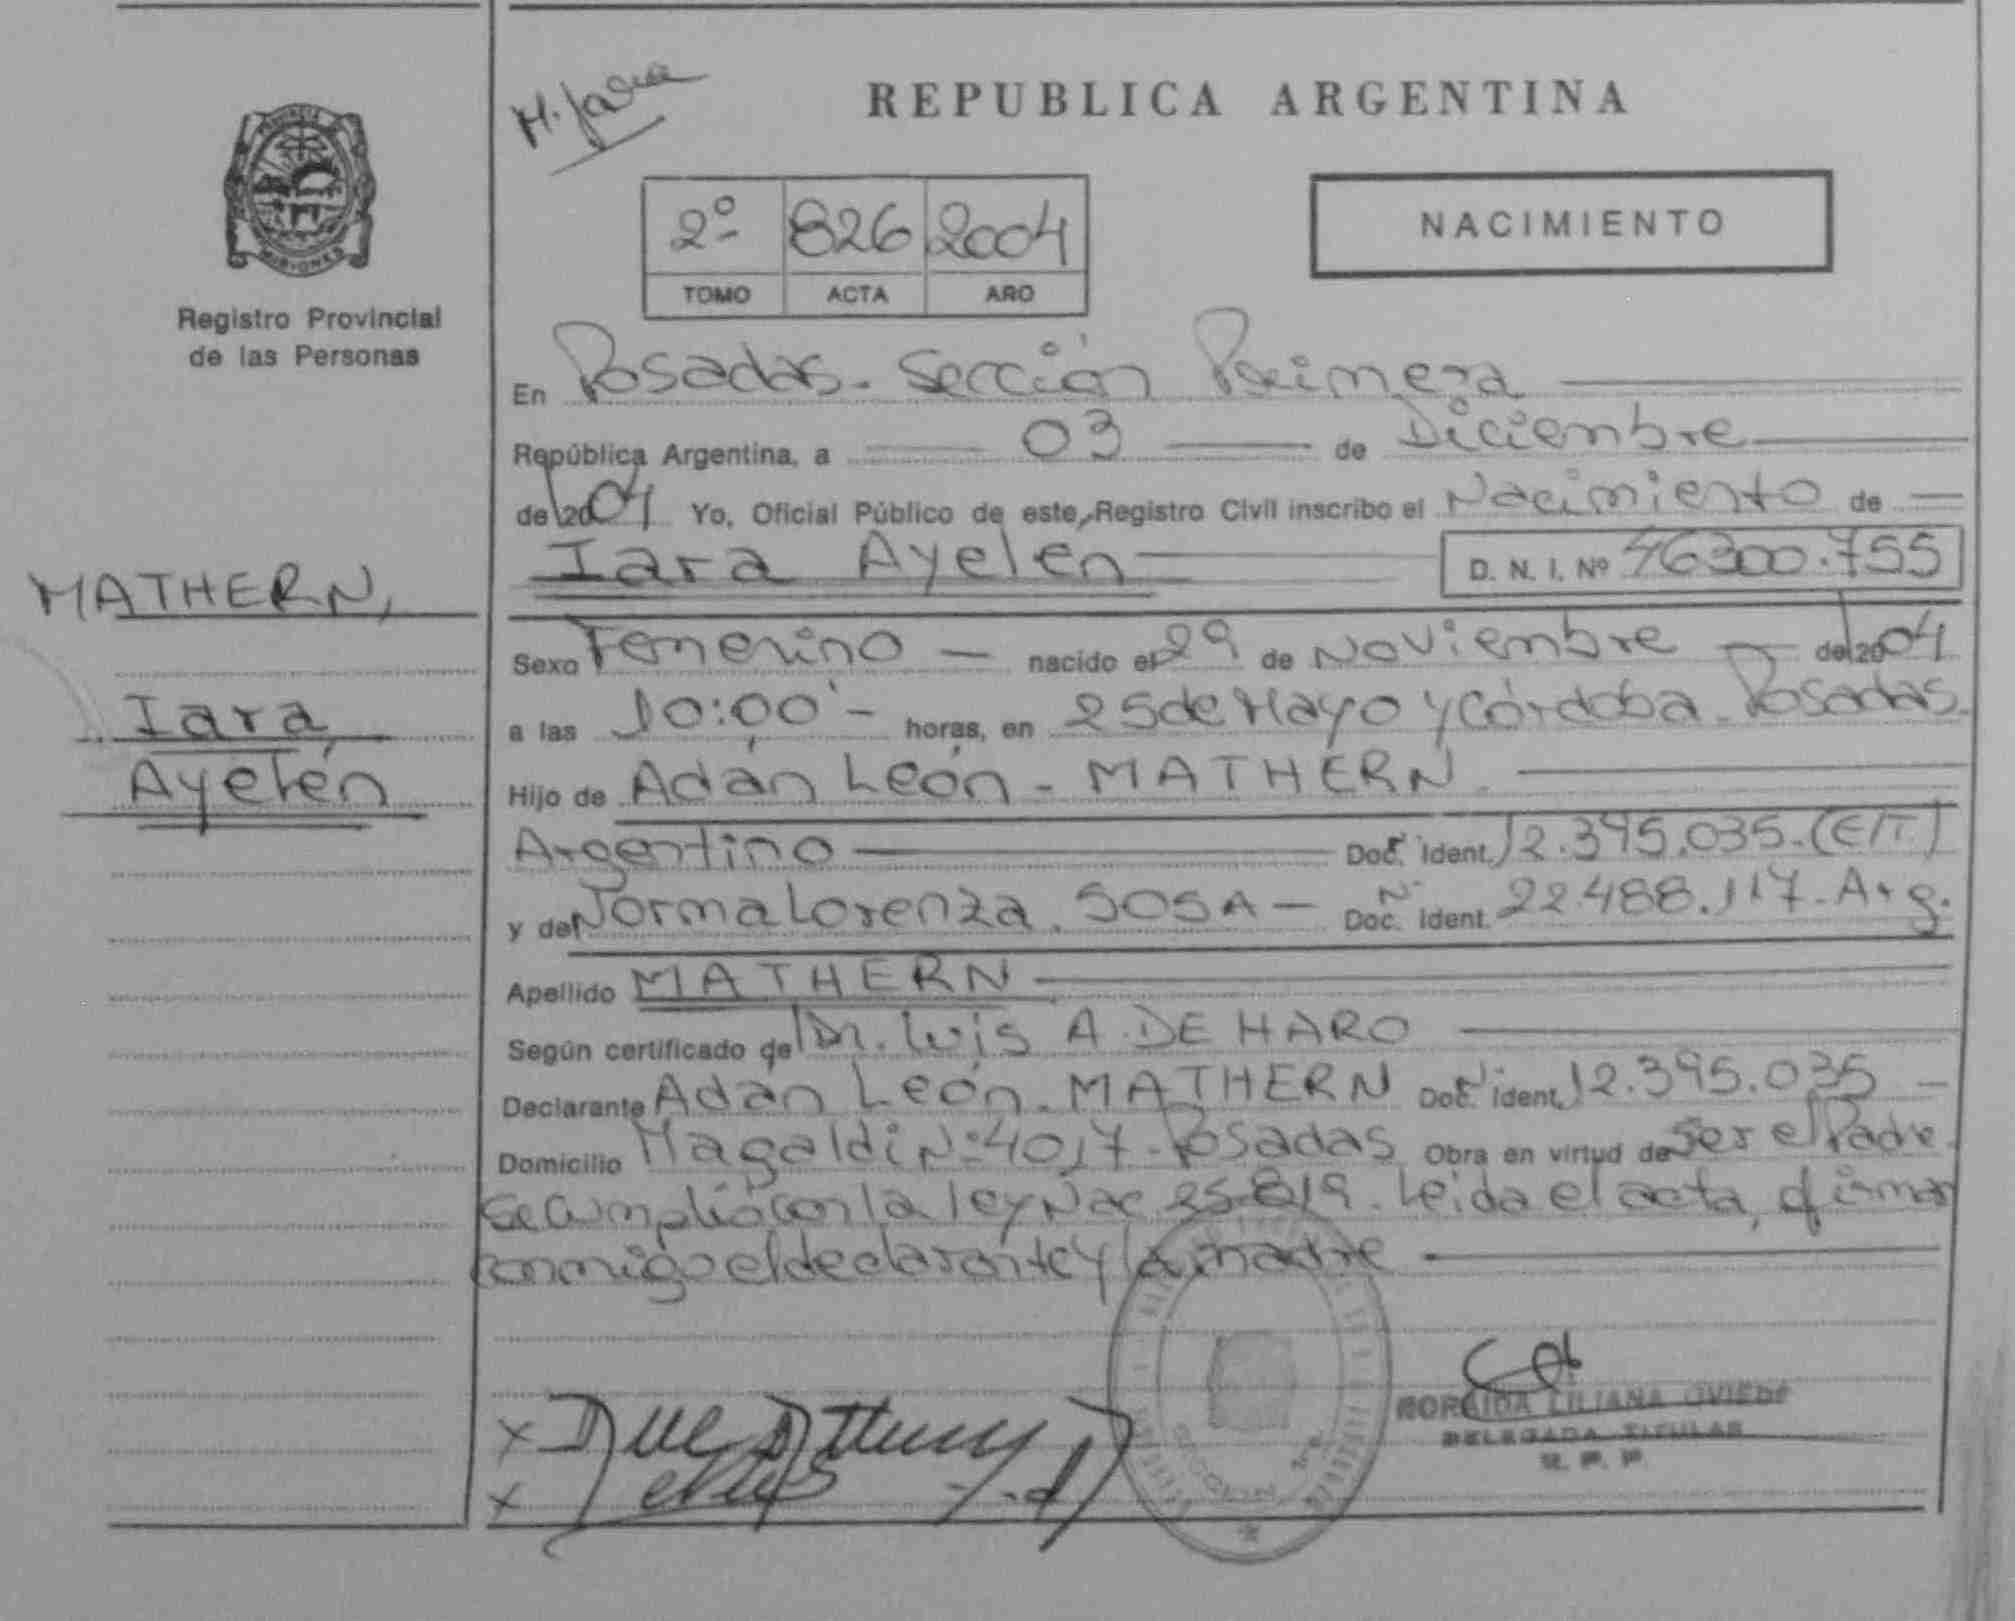 REPUBLICA ARGENTINA
PROVINCIA
MISIONES
Registro Provincial
de las Personas
2º 826 2004
TOMO ACTA AÑO
NACIMIENTO
En Posadas. Sección Primera
República Argentina, a 03 de Diciembre
de 2004 Yo, Oficial Público de este Registro Civil inscribo el Nacimiento de
Iara Ayelén
D. N. I. Nº 46300.755
MATHERN,
Iara
Ayelén
Sexo Femenino nacido el 29 de Noviembre de 2004
a las 10:00 horas, en 25 de Mayo y Córdoba. Posadas.
Hijo de Adán León - MATHERN.
Argentino Doc. Ident. 12.395.035.(E/T)
y de Norma Lorenza. SOSA - Doc. Ident. 22.488.117 - Arg.
Apellido MATHERN
Según certificado de Dr. Luis A. DE HARO
Declarante Adán León. MATHERN Doc. Ident. 12.395.035 -
Domicilio Magaldi Nº 4017 - Posadas Obra en virtud de Ser el Padre.
Se cumplió con la ley Nac 25.819. Leida el acta, firman
conmigo el declarante y la madre
LILIANA OVIEDO
DELEGADA TITULAR
R. P. P.